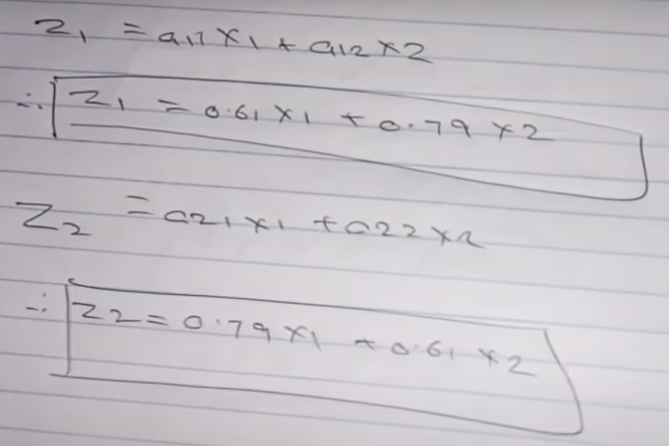 Z₁ = a11 X1 + a12 X2
∴ Z₁ = 0.61 X1 + 0.79 X2
Z₂ = a21 X1 + a22 X2
∴ Z2 = 0.79 X1 + 0.61 X2